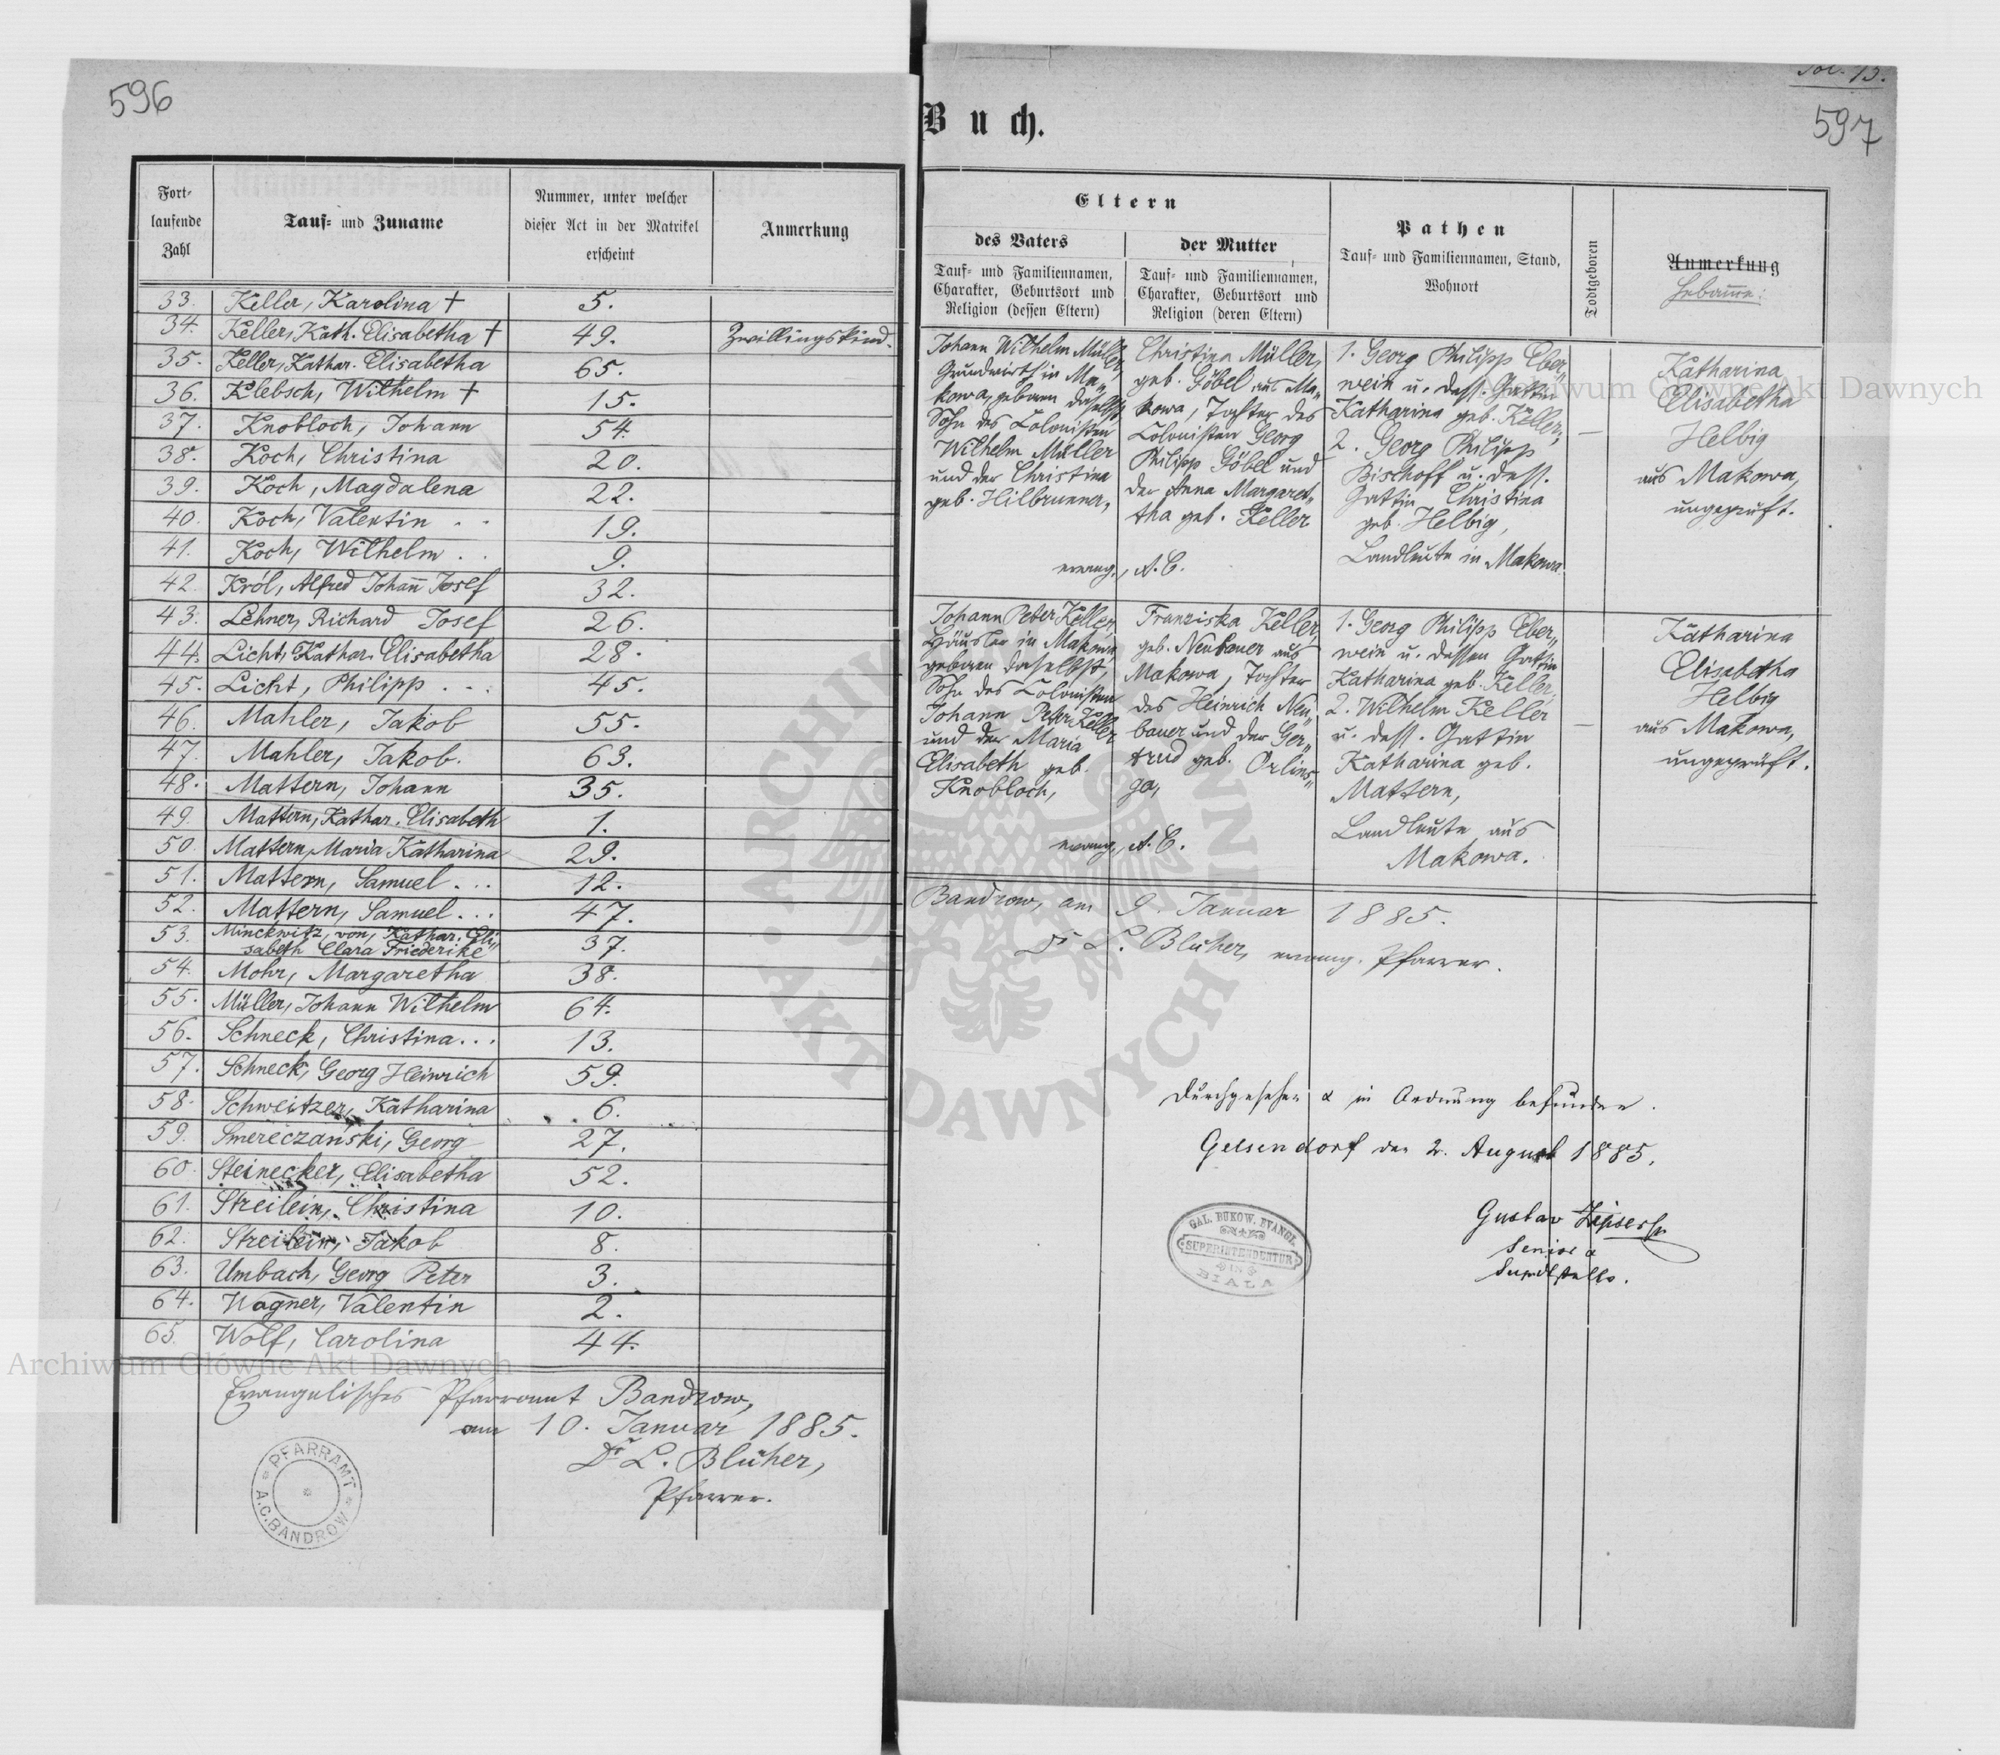 596
Fort-
laufende
Zahl
Tauf- und Zuname
Nummer, unter welcher
dieser Act in der Matrikel
erscheint
Anmerkung
33. Keller, Karolina † 5.
34. Keller, Kath. Elisabetha † 49. Zwillingskind.
35. Keller, Kathar. Elisabetha 65.
36. Klebsch, Wilhelm † 15.
37. Knobloch, Johann 54.
38. Koch, Christina 20.
39. Koch, Magdalena 22.
40. Koch, Valentin . . 19.
41. Koch, Wilhelm . . 9.
42. Król, Alfred Johañ Josef 32.
43. Lehner, Richard Josef 26.
44. Licht, Kathar. Elisabetha 28.
45. Licht, Philipp . . . 45.
46. Mahler, Jakob 55.
47. Mahler, Jakob. 63.
48. Mattern, Johann 35.
49. Mattern, Kathar. Elisabeth 1.
50. Mattern, Maria Katharina 29.
51. Mattern, Samuel . . . 12.
52. Mattern, Samuel . . . 47.
53. Minckwitz, von, Kathar. Eli„
sabeth Clara Friederike 37.
54. Mohr, Margaretha 38.
55. Müller, Johann Wilhelm 64.
56. Schneck, Christina . . . 13.
57. Schneck, Georg Heinrich 59.
58. Schweitzer, Katharina 6.
59. Smereczański, Georg 27.
60. Steinecker, Elisabetha 52.
61. Streilein, Christina 10.
62. Streilein, Jakob 8.
63. Umbach, Georg Peter 3.
64. Wagner, Valentin 2.
65. Wolf, Carolina 44.
Evangelisches Pfarramt Bandrow,
am 10. Januar 1885.
Dr L. Blüher,
Pfarrer.
PFARRAMT
A.C. BANDROW
Fol. 13.
597
Buch.
Eltern
des Vaters
Tauf- und Familiennamen,
Charakter, Geburtsort und
Religion (dessen Eltern)
der Mutter
Tauf- und Familiennamen,
Charakter, Geburtsort und
Religion (deren Eltern)
Pathen
Tauf- und Familiennamen, Stand,
Wohnort
Todtgeboren
Anmerkung
Hebamme:
Johann Wilhelm Müller,
Grundwirth in Ma„
kowa, geboren daselbst,
Sohn des Colonisten
Wilhelm Müller
und der Christina
geb. Hilbrunner,
Christina Müller,
geb. Göbel aus Ma„
kowa, Tochter des
Colonisten Georg
Philipp Göbel und
der Anna Margaret„
tha geb. Keller
evang. A. C.
1. Georg Philipp Eber„
wein u. dess. Gattin
Katharina geb. Keller,
2. Georg Philipp
Bischoff u. dess.
Gattin Christina
geb. Helbig,
Landleute in Makowa.
—
Katharina
Elisabetha
Helbig
aus Makowa,
ungeprüft.
Johann Peter Keller,
Häusler in Makowa
geboren daselbst,
Sohn des Colonisten
Johann Peter Keller
und der Maria
Elisabeth geb.
Knobloch,
Franziska Keller,
geb. Neubauer aus
Makowa, Tochter
des Heinrich Neu„
bauer und der Ger„
trud geb. Orlins„
ga,
evang. A. C.
1. Georg Philipp Eber„
wein u. dessen Gattin
Katharina geb. Keller,
2. Wilhelm Keller
u. dess. Gattin
Katharina geb.
Mattern,
Landleute aus
Makowa.
—
Katharina
Elisabetha
Helbig
aus Makowa,
ungeprüft.
Bandrow, am 9. Januar 1885.
Dr L. Blüher, evang. Pfarrer.
Durchgesehen & in Ordnung befunden.
Gelsendorf den 2. August 1885.
Gustav Zipser
Senior &
GAL. BUKOW. EVANGL.
SUPERINTENDENTUR
IN
BIALA
Archiwum Główne Akt Dawnych
Archiwum Główne Akt Dawnych
ARCHIWUM GŁÓWNE AKT DAWNYCH